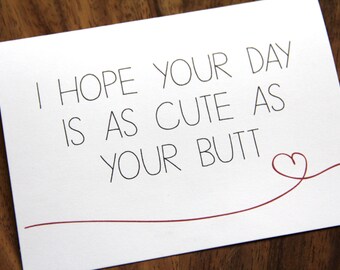 I HOPE YOUR DAY
IS AS CUTE AS
YOUR BUTT